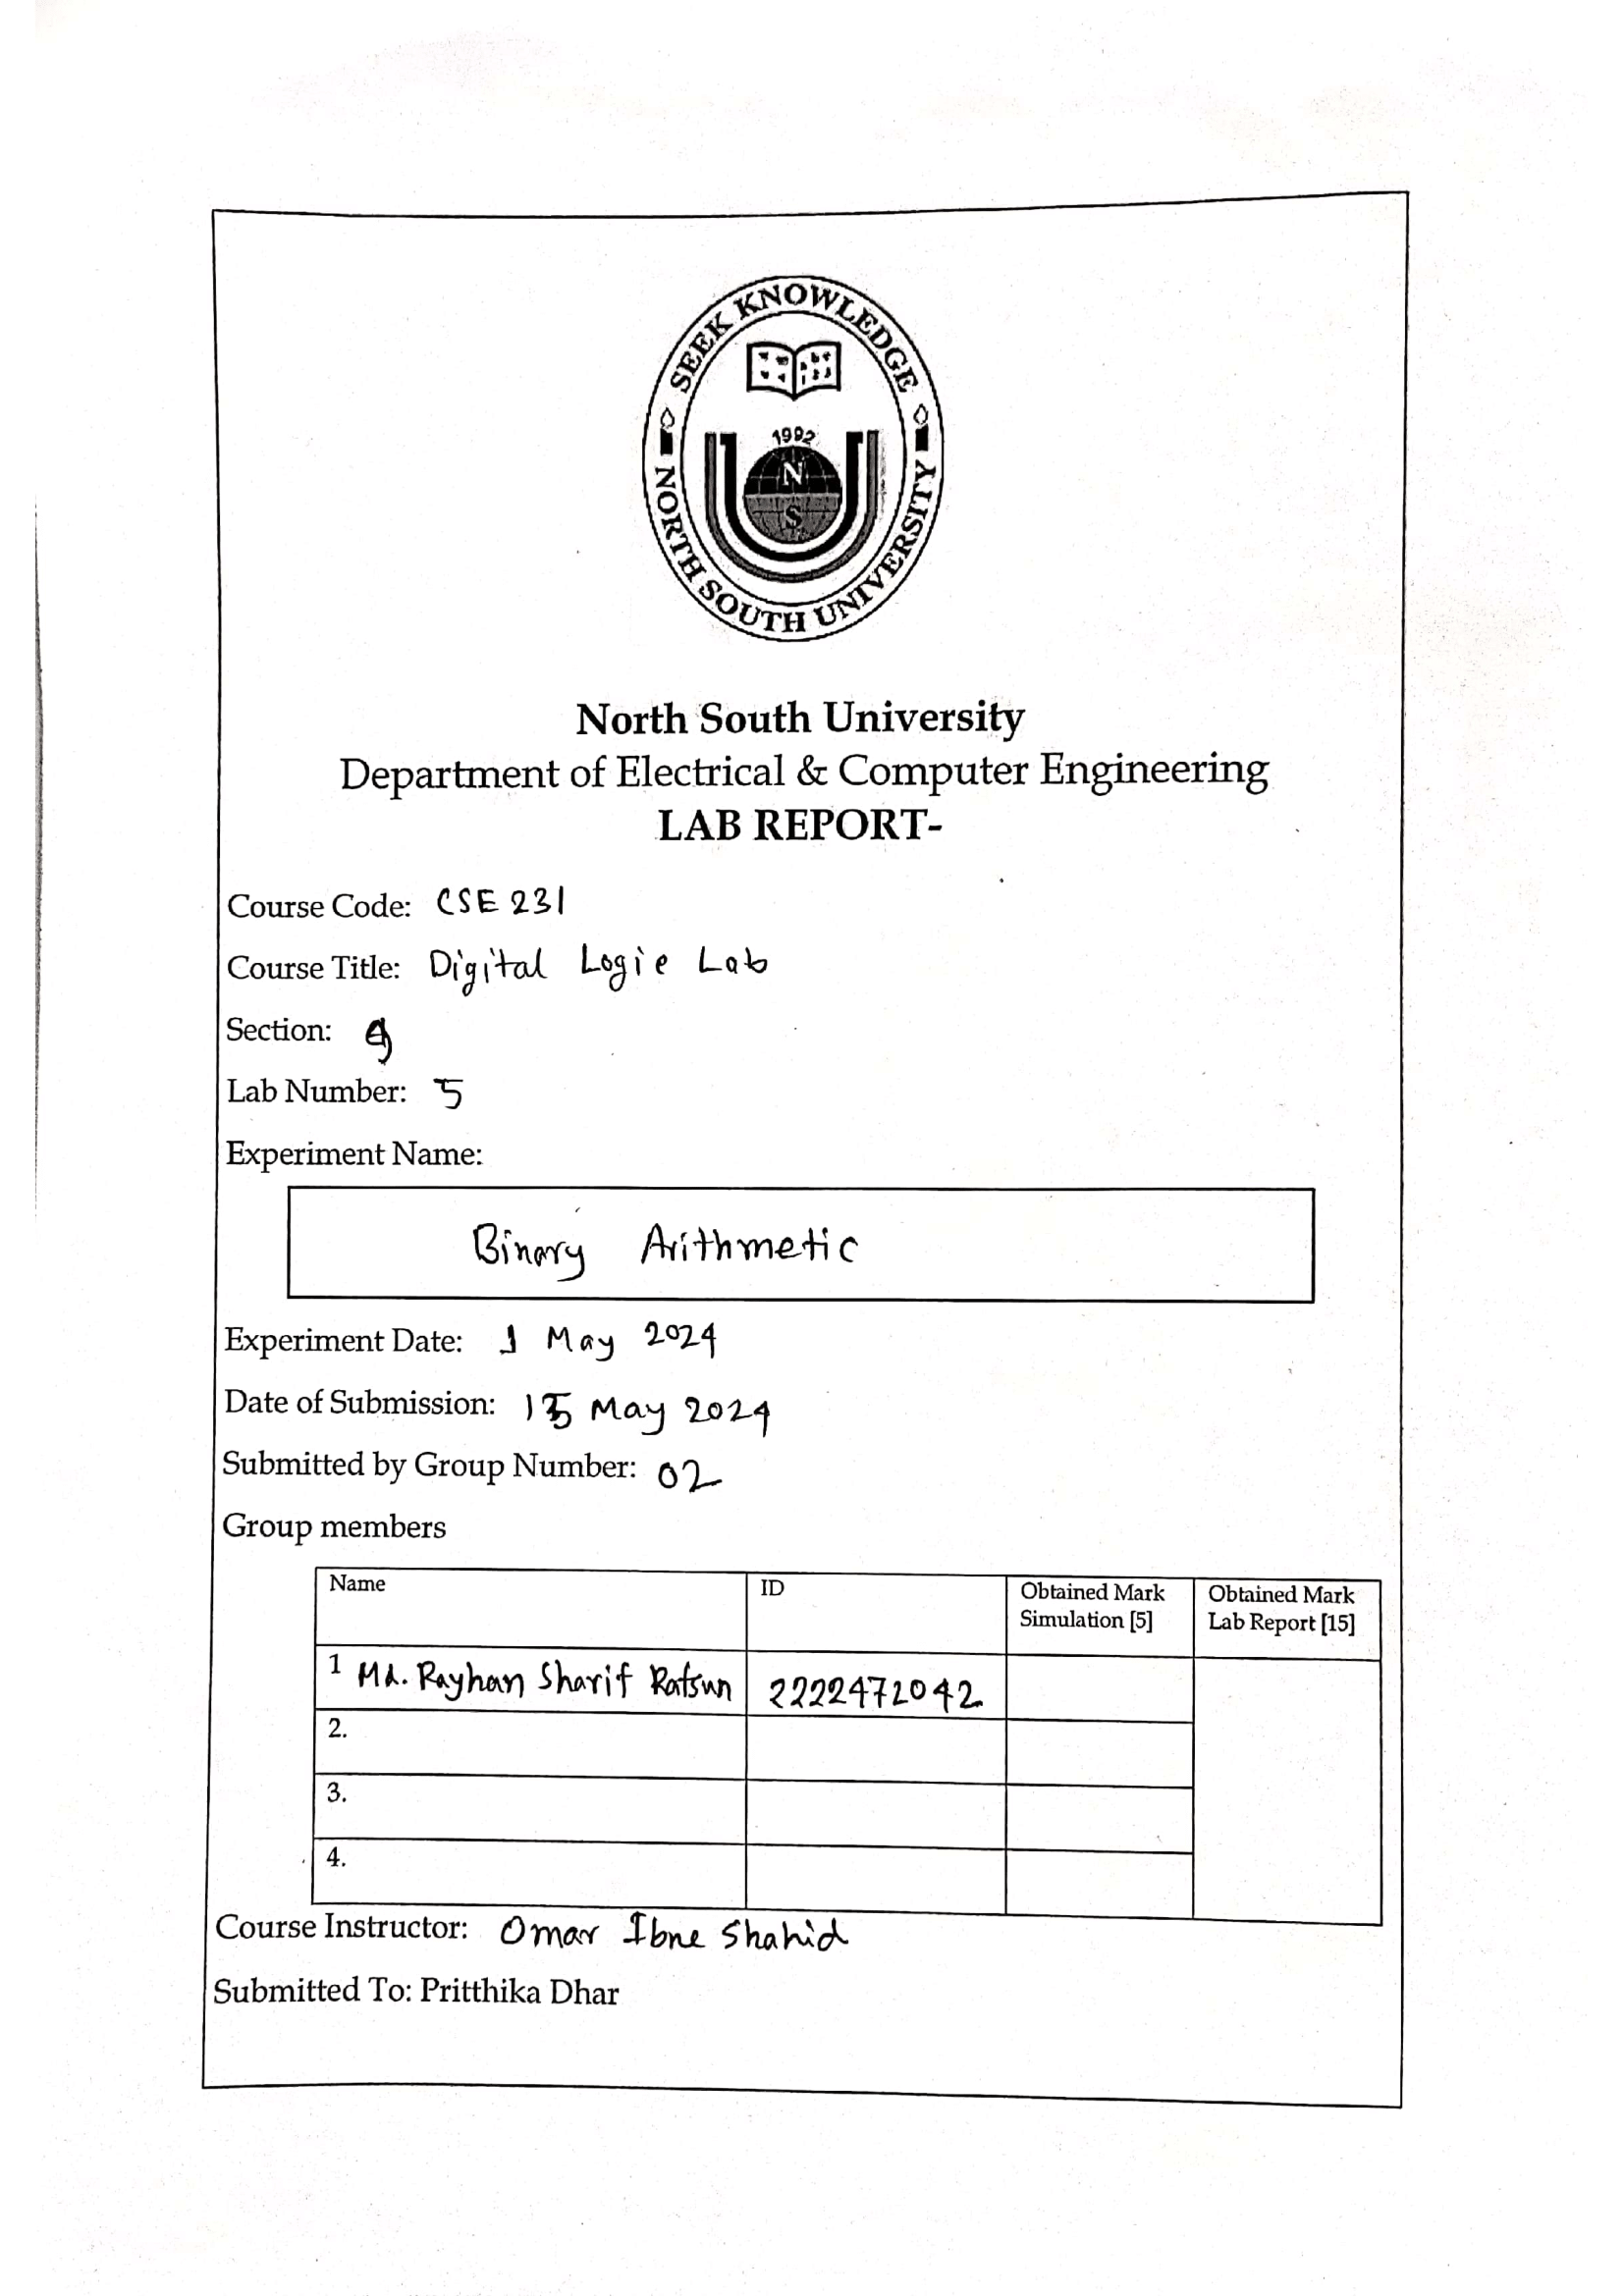 SEEK KNOWLEDGE
1992
N
S
NORTH SOUTH UNIVERSITY
North South University
Department of Electrical & Computer Engineering
LAB REPORT-
Course Code: CSE 231
Course Title: Digital Logic Lab
Section:
Lab Number: 5
Experiment Name:
Binary Arithmetic
Experiment Date: 1 May 2024
Date of Submission: May 2024
Submitted by Group Number: 02
Group members
Name ID Obtained Mark Simulation [5] Obtained Mark Lab Report [15]
1 Md. Rayhan Sharif Ratsun 2222472042
2.
3.
4.
Course Instructor: Omar Ibne Shahid
Submitted To: Pritthika Dhar